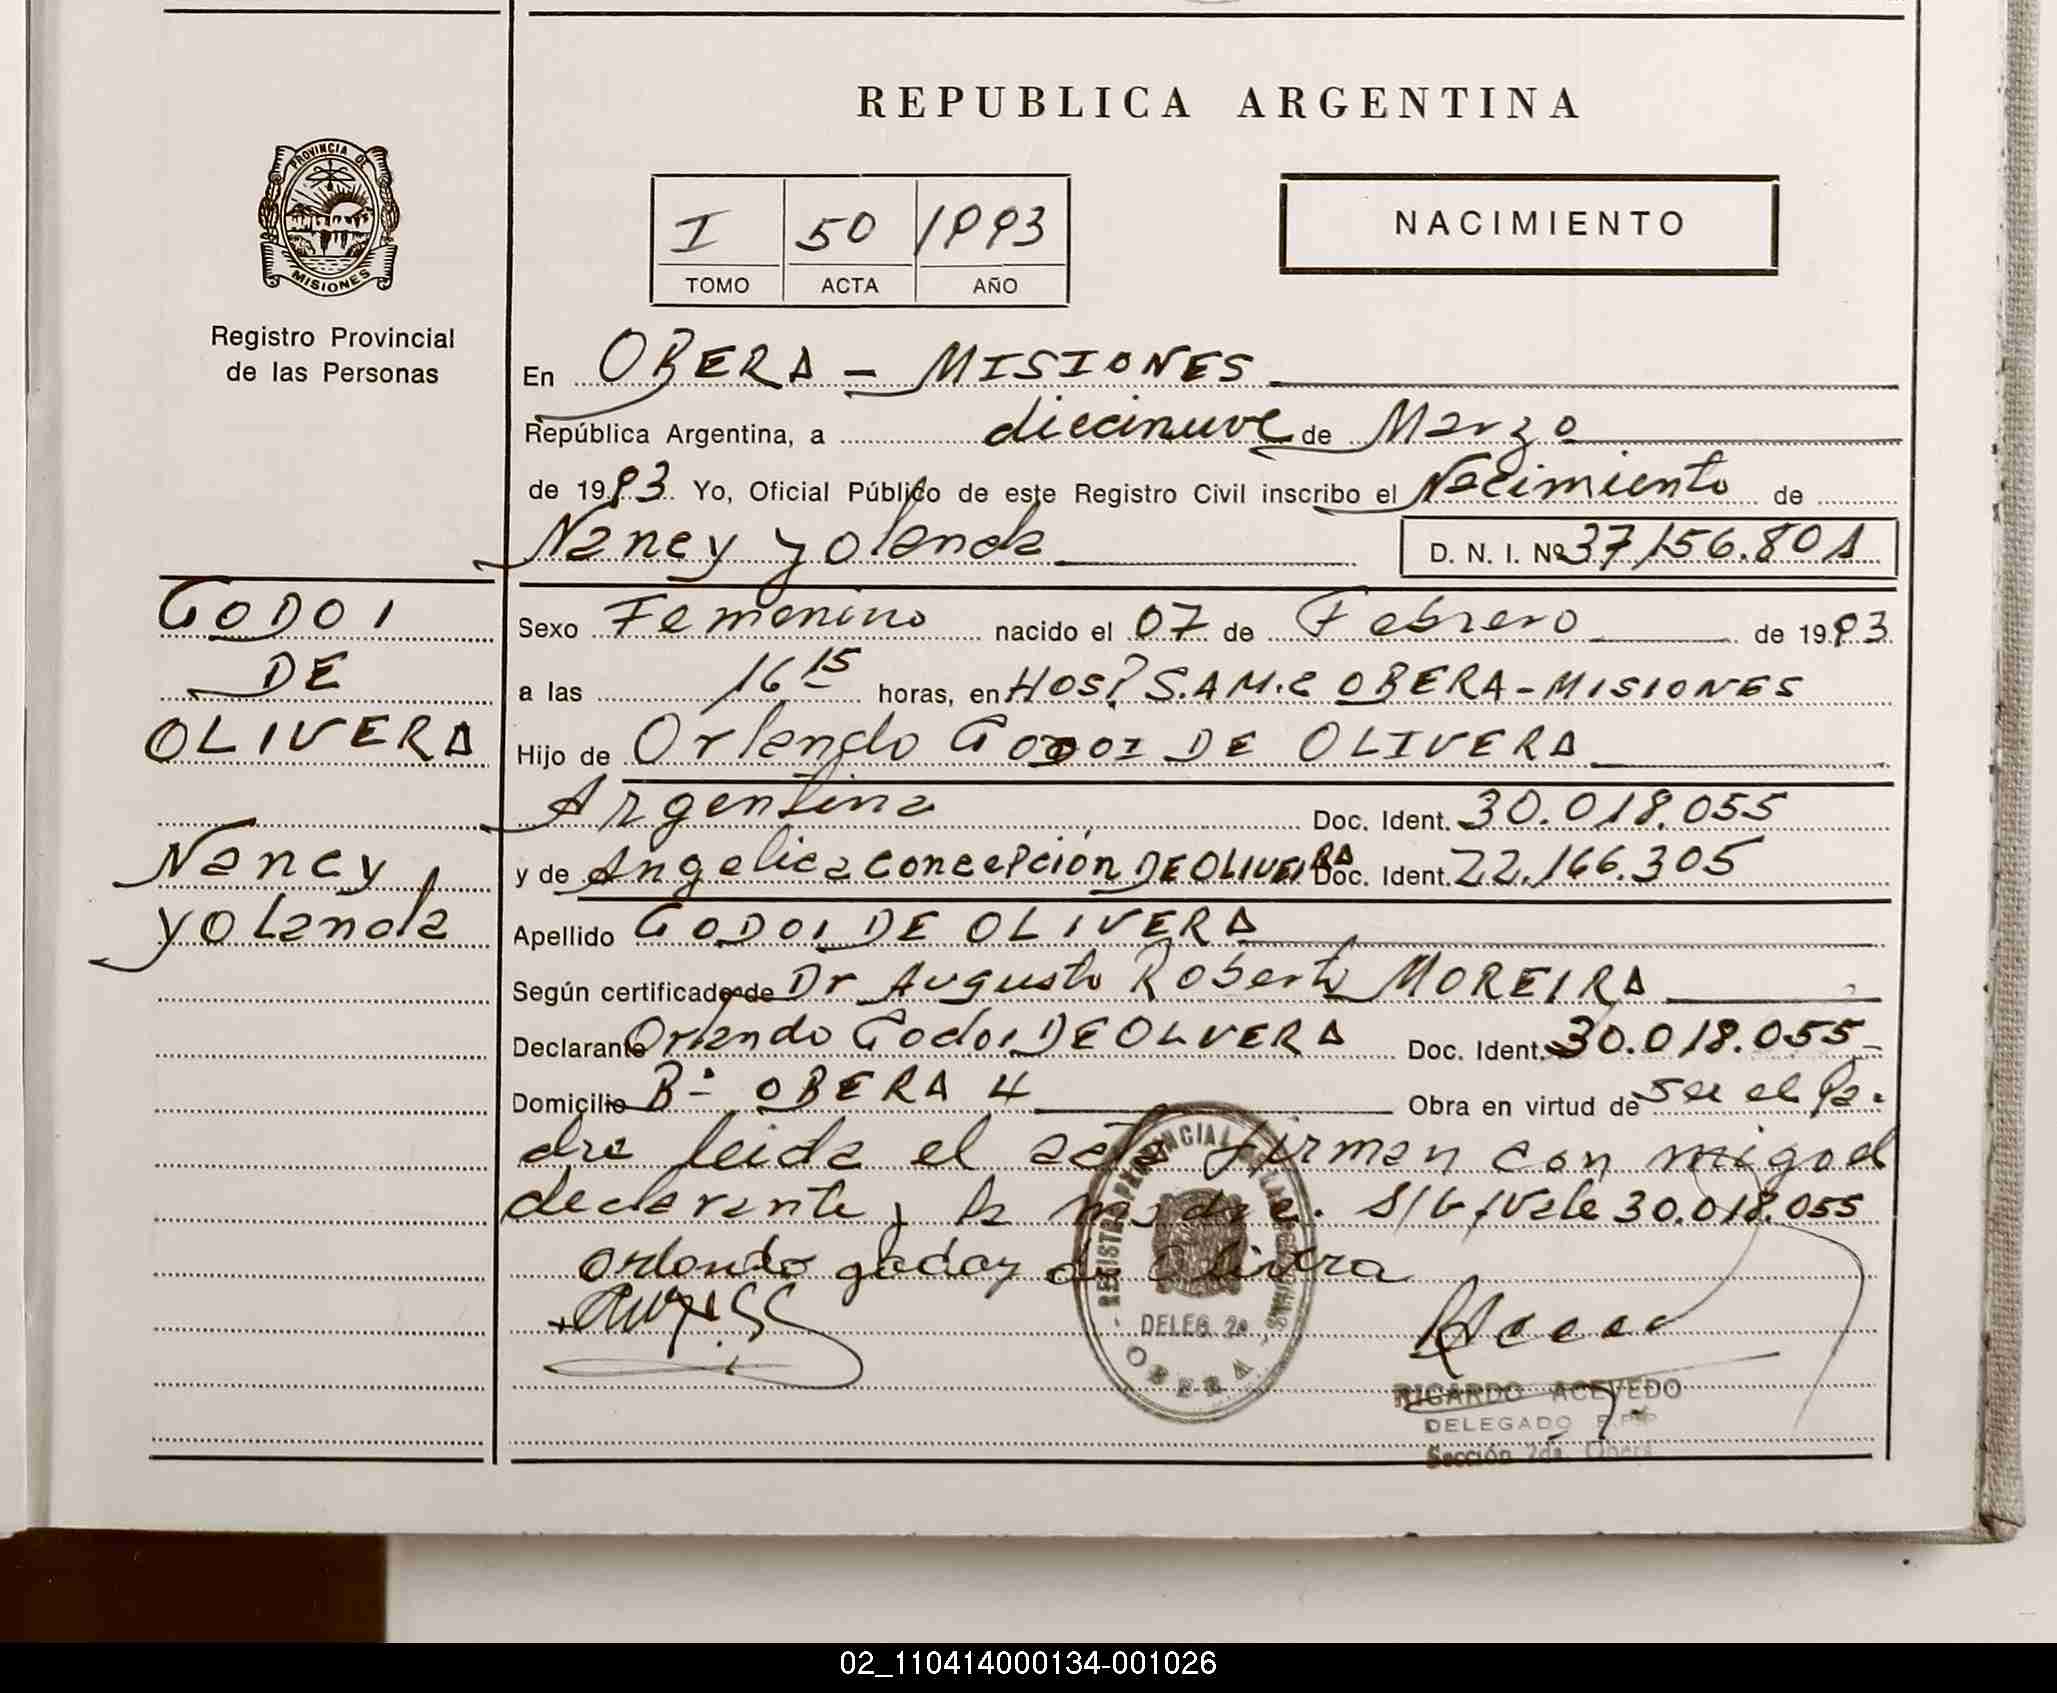 REPUBLICA ARGENTINA
PROVINCIA DE
MISIONES
Registro Provincial
de las Personas
I 50 1993
TOMO ACTA AÑO
NACIMIENTO
En OBERA - MISIONES
República Argentina, a diecinuve de Marzo
de 1993 Yo, Oficial Público de este Registro Civil inscribo el Nacimiento de
Nancy yolanda D. N. I. Nº 37/156.801
GODOI
DE
OLIVERA
Nancy
yolanda
Sexo Femenino nacido el 07 de Febrero de 1993
a las 16 15 horas, en HOSP S.A.M.C OBERA - MISIONES
Hijo de Orlando GODOI DE OLIVERA
Argentina Doc. Ident. 30.018.055
y de Angelica concepción DE OLIVERA Doc. Ident. 22.166.305
Apellido GODOI DE OLIVERA
Según certificado de Dr Augusto Roberto MOREIRA
Declarante Orlando Godoi DE OLIVERA Doc. Ident. 30.018.055
Domicilio Bº OBERA 4 Obra en virtud de ser el Pa.
dre leida el acta firman con migo el
declarante y la madre. S/ Vale 30.018.055
orlando godoy de olivera
REGISTRO PROVINCIAL DE LAS PERSONAS
DELEG. 2a
OBERA
RICARDO ACEVEDO
DELEGADO
Sección 2da. Oberá
02_110414000134-001026